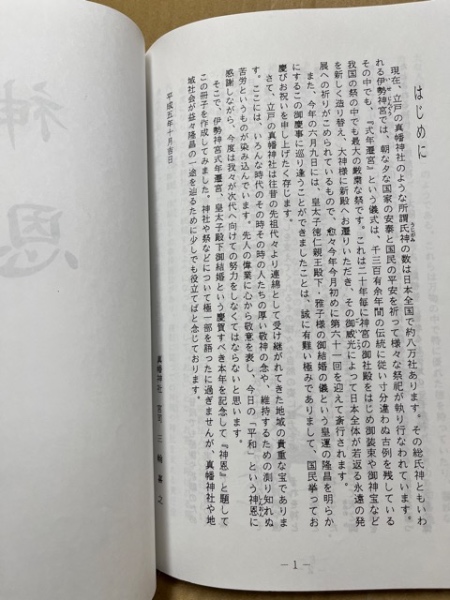 はじめに
現在、立戸の真幡神社のような所謂氏神の数は日本全国で約八万社あります。その総氏神ともいわ
れる伊勢神宮では、朝な夕な国家の安泰と国民の平安を祈って様々な祭祀が執り行なわれています。
その中でも、『式年遷宮』という儀式は、千三百有余年間の伝統に従い寸分違わぬ古例を残している
我国の祭の中でも最大の厳粛な祭です。これは二十年毎に神宮の御社殿をはじめ御装束や御神宝など
を新しく造り替え、大神様に新殿へお遷りいただき、その御威光によって日本全体が若返る永遠の発
展への祈りがこめられているもので、愈々今年今月初めに第六十一回を迎えて斎行されます。
また、今年の六月九日には、皇太子徳仁親王殿下・雅子様の御結婚の儀という皇運の隆昌を明らか
にするこの御慶事に巡り逢うことができましたことは、誠に有難い極みでありまして、国民挙ってお
慶びお祝いを申し上げたく存じます。
さて、立戸の真幡神社は往昔の先祖代々より連綿として受け継がれてきた地域の貴重な宝でありま
す。ここには、いろんな時代のその時その時の人たちの厚い敬神の念や、維持するための測り知れぬ
苦労というものが染み込んでいます。先人の偉業に心から敬意を表し、今日の「平和」という神恩に
感謝しながら、今度は我々が次代へ向けての努力をしなくてはならないと思います。
そこで、伊勢神宮式年遷宮、皇太子殿下御結婚という慶賀すべき本年を記念して『神恩』と題して
この冊子を作成してみました。神社や祭などについて極一部を語ったに過ぎませんが、真幡神社や地
域社会が益々隆昌の一途を辿るために少しでも役立てばと念じております。
平成五年十月吉日
真幡神社 宮司 三
之
―1―
神恩